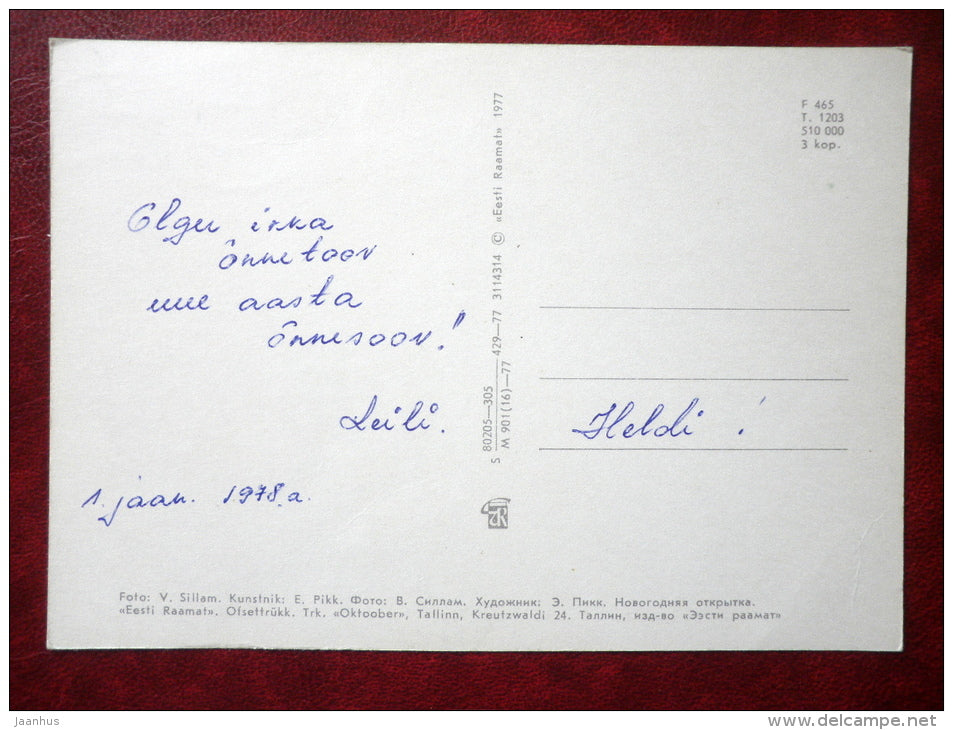 Olgu ikka
õnnetoov
uue aasta
õnnesoov!
Leili.
1. jaan. 1978.a.
S 80205—305 429—77 3114314 © «Eesti Raamat» 1977
M 901(16)—77
F 465
T. 1203
510 000
3 kop.
Heldi!
Foto: V. Sillam. Kunstnik: E. Pikk. Фото: В. Силлам. Художник: Э. Пикк. Новогодняя открытка.
«Eesti Raamat». Ofsettrükk. Trk. «Oktoober», Tallinn, Kreutzwaldi 24. Таллин, изд-во «Ээсти раамат»
jaanhus
www.delcampe.net